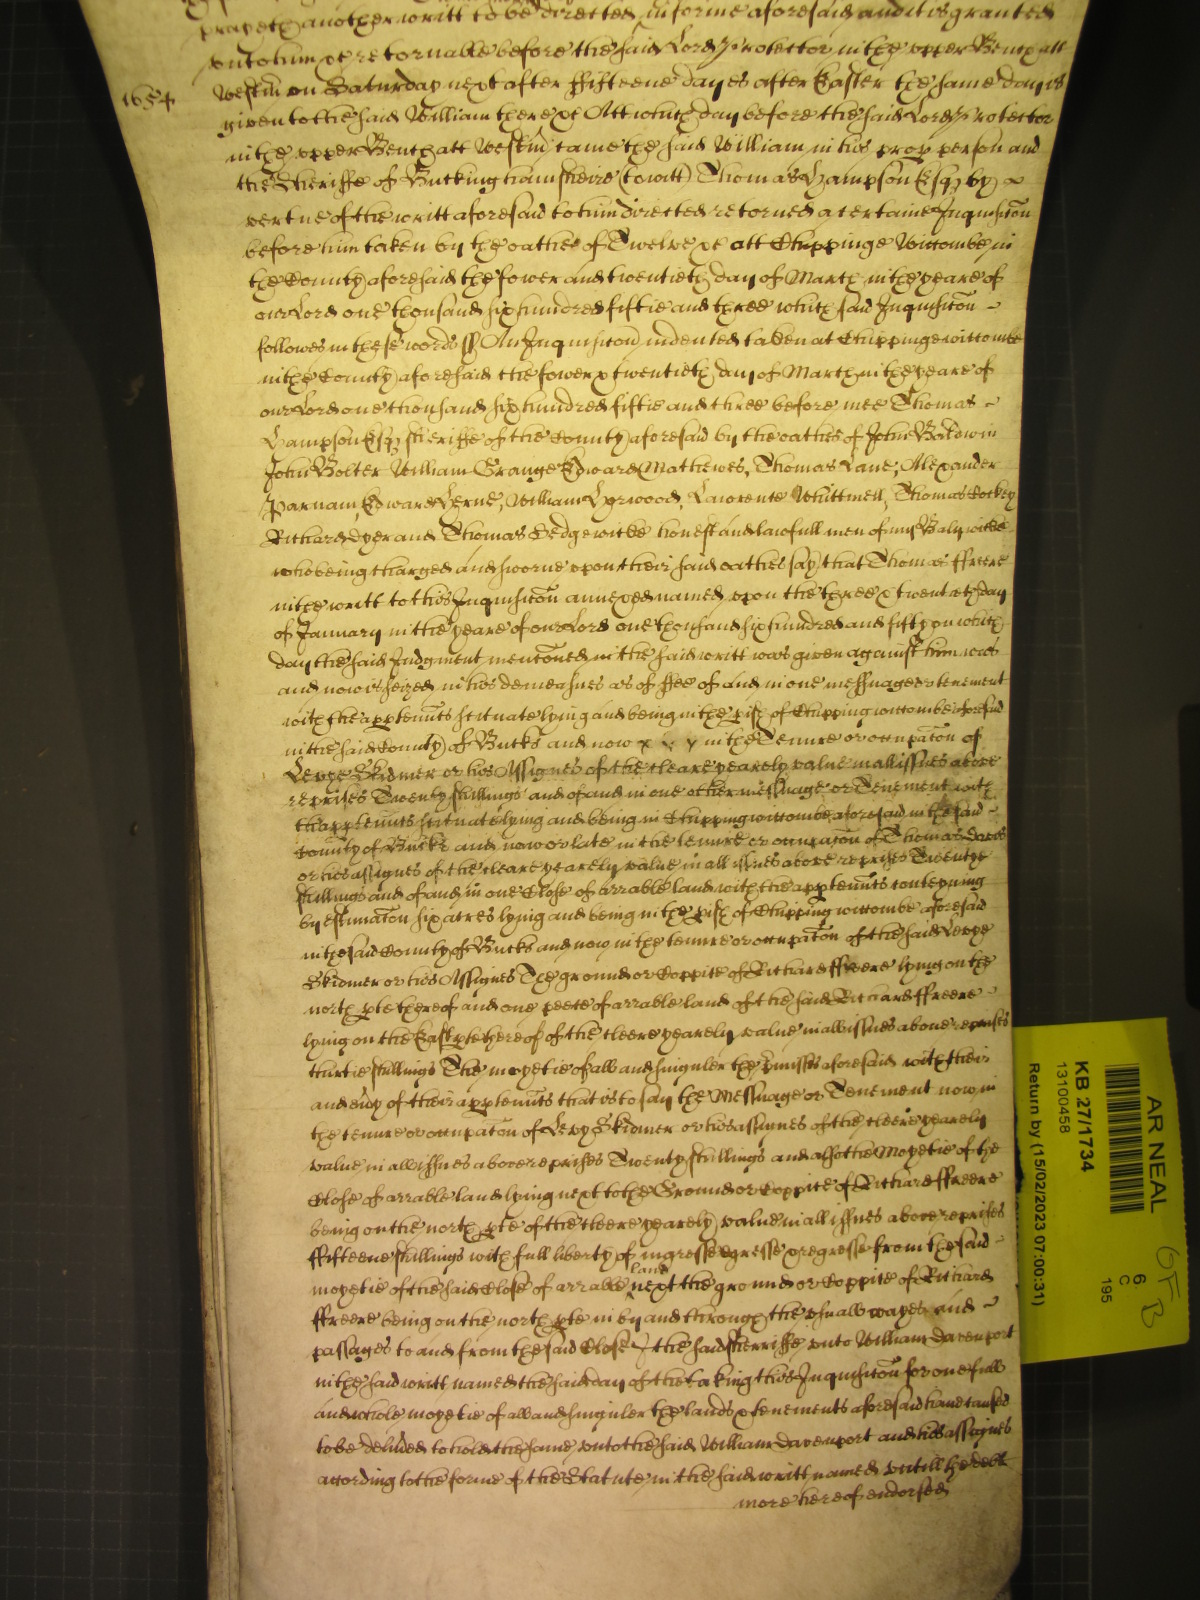 prayeth another writt to be directed in forme aforesaid and it is granted
unto him &c retornable before the said Lord Protector in the upper Bench att
1654 Westm on Saturday next after ffifteene dayes after Easter the same day is
given to the said William there &c Att which day before the said Lord Protector
in the upper Bench att Westm came the said William in his prop person and
the Sheriffe of Buckinghamsheire (to witt) Thomas Hampson Esqr by
vertue of the writt aforesaid to him directed retorned a certaine Inquisicon
before him taken by the oathes of Twelve &c att Chippinge Wiccombe in
the County aforesaid the fower and twentieth day of March in the yeare of
our Lord one thousand six hundred fiftie and three which said Inquisicon
followes in these words ss An Inquisicon indented taken at Chippinge wiccombe
in the County aforesaid the fower & twentieth day of March in the yeare of
our Lord one thousand six hundred fiftie and three before mee Thomas
Hampson Esqr sheriffe of the County aforesaid by the oathes of John Boldwin
John Bolter William Grange Edward Mathewes, Thomas Lane, Alexander
Parnam, Edward Herne, William Harwood, Lawrence Whittnell, Thomas Cockey
Richard Dyer and Thomas Sedgewicke honest and lawfull men of my Balywicke
who being charged and sworne upon their said oathes say that Thomas ffreere
in the writt to this Inquisicon annexed named upon the three & twentieth day
of January in the yeare of our Lord one thousand six hundred and fifty on which
day the said Judgment menconed in the said writt was given against him was
and now is seized in his demeasnes as of ffee of and in one messuage or tenement
with the apptenncts scituate lying and being in the pish of Chipping wiccombe aforesaid
in the said County of Bucks and now in the Tenure or occupacon of
Levye Skidmer or his Assignes of the cleare yearely value in all issues above
reprises Twenty shillings and of and in one other messuage or Tenement with
thapptenncts scituate lying and being in Chipping wiccombe aforesaid in the said
County of Bucks and now or late in the tenure or occupacon of Thomas Davis
or his assignes of the cleare yearely value in all issues above reprises Twentye
shillings and of and in one Close of arrable land with the apptenncts conteyning
by estimacon six acres lying and being in the pish of Chipping wiccombe aforesaid
in the said County of Bucks and now in the tenure or occupacon of the said Levye
Skidmer or his Assignes The ground or Coppice of Richard ffreere lying on the
north pte thereof and one peece of arrable land of the said Richard ffreere
lying on the East pte thereof of the cleere yearely value in all issues above reprises
thirtie shillings The moyetie of all and singuler the pmisses aforesaid with their
and evy of their apptenncts that is to say the Messuage or Tenement now in
the tenure or occupacon of Levy Skidmer or his assignes of the cleere yearely
value in all issues above reprises Twenty shillings and also the Moyetie of the
Close of arrable land lying next to the Ground or Coppice of Richard ffreere
being on the north pte of the cleere yearely value in all issues above reprises
ffifteene shillings with full liberty of ingresse egresse & regresse from the said
moyetie of the said Close of arrable land next the ground or Coppice of Richard
ffreere being on the north pte in by and through the usuall wayes and
passages to and from the said Close I the said Sherriffe unto William Davenport
in the said writt named the said day of the taking this Inquisicon for one full
and whole moyetie of all and singuler the lands & tenements aforesaid have caused
to be delivered to hold the same unto the said William Davenport and his assignes
according to the forme of the Statute in the said writt named untill the debt
more hereof endorsed
AR NEAL
KB 27/1734
13100458
Return by (15/02/2023 07:00:31)
6
C
195
6F
B